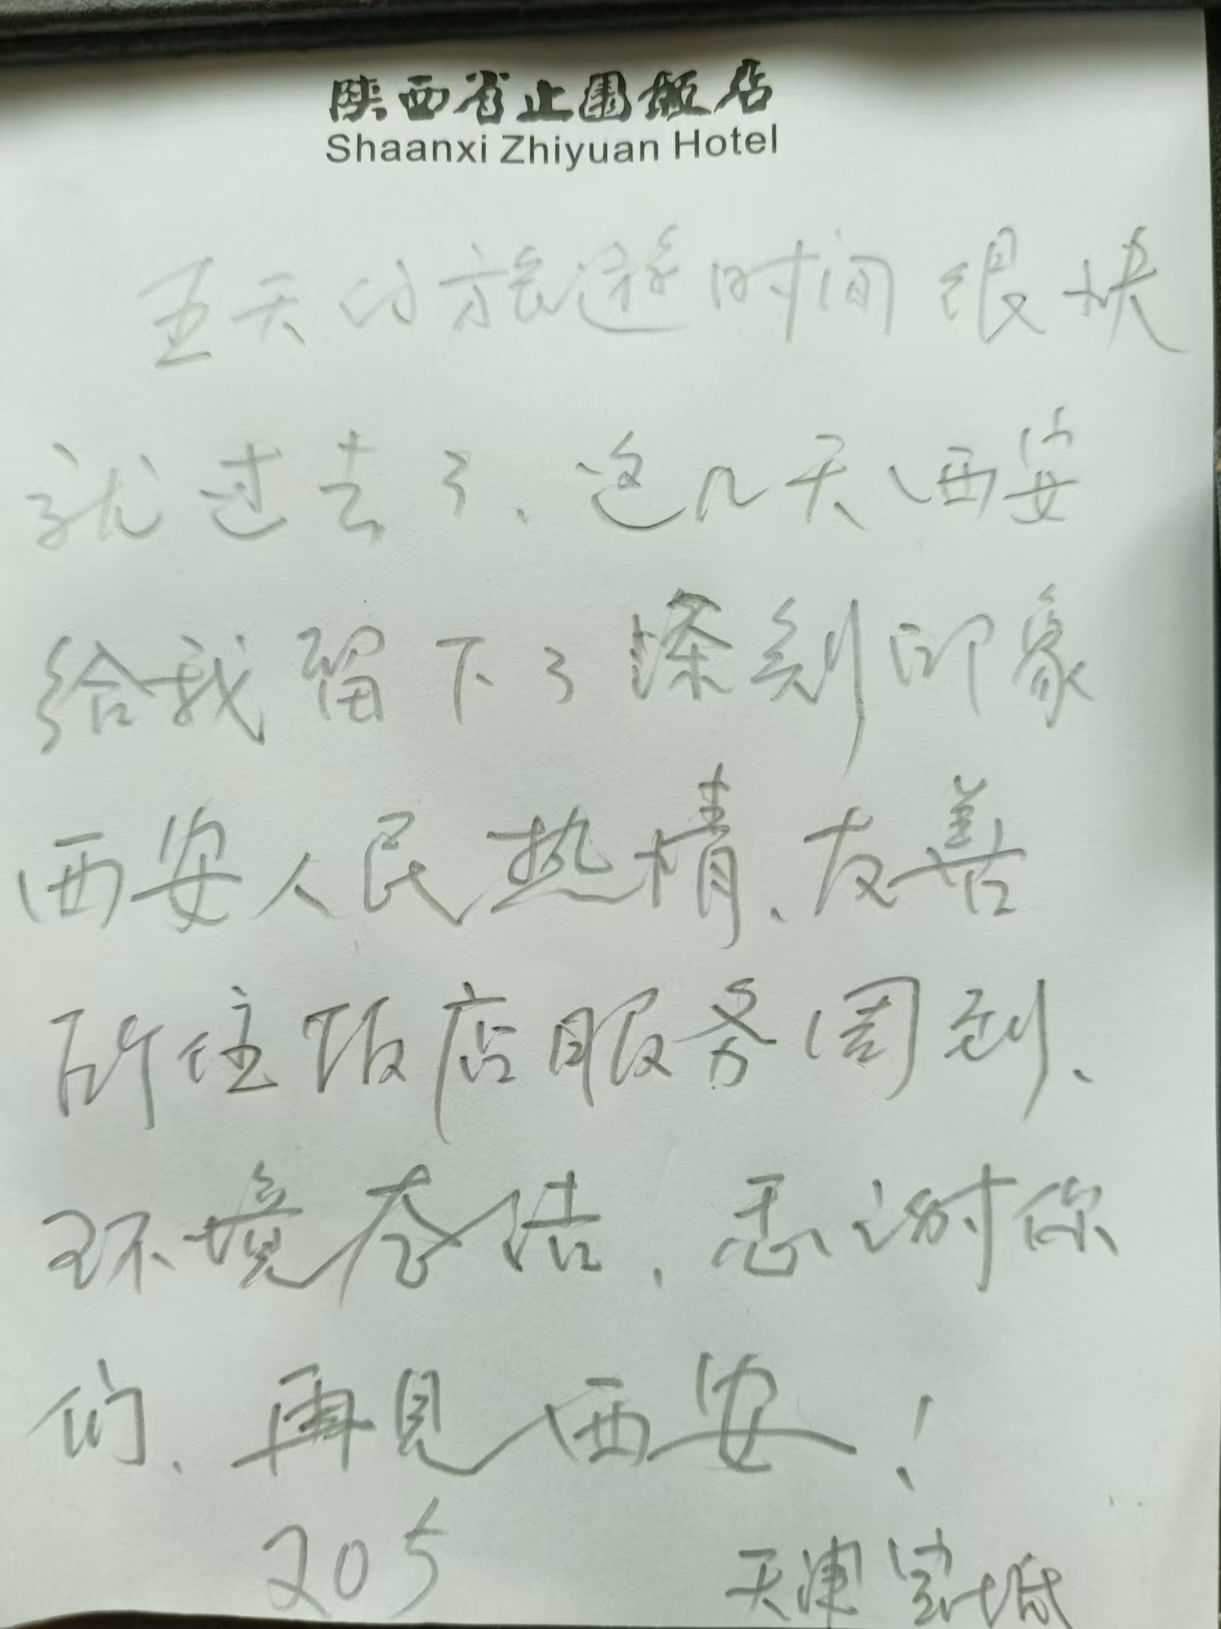 陕西省止园饭店
Shaanxi Zhiyuan Hotel
五天的旅游时间很快
就过去了、这几天西安
给我留下了深刻印象
西安人民热情、友善
所住饭店服务周到、
环境整洁、感谢你
们、再见西安！
205 天津宝坻